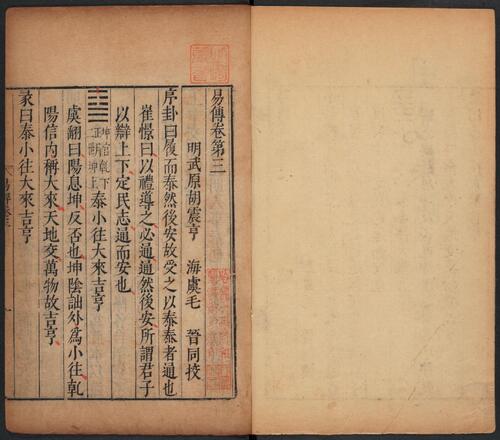 易傳卷第三
明武原胡震亨　海虞毛　晉同挍
序卦曰履而泰然後安故受之以泰泰者通也
崔憬曰以禮導之必通通然後安所謂君子
以辯上下定民志通而安也
坤宮乾下
三世坤上
泰小往大來吉亨
虞翻曰陽息坤反否也坤陰詘外爲小往乾
陽信内稱大來天地交萬物故吉亨
彖曰泰小往大來吉亨